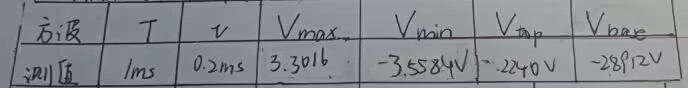 方波 T τ Vmax Vmin Vtop Vbase
测值 1ms 0.2ms 3.3016 -3.5584V -.2240V -28912V